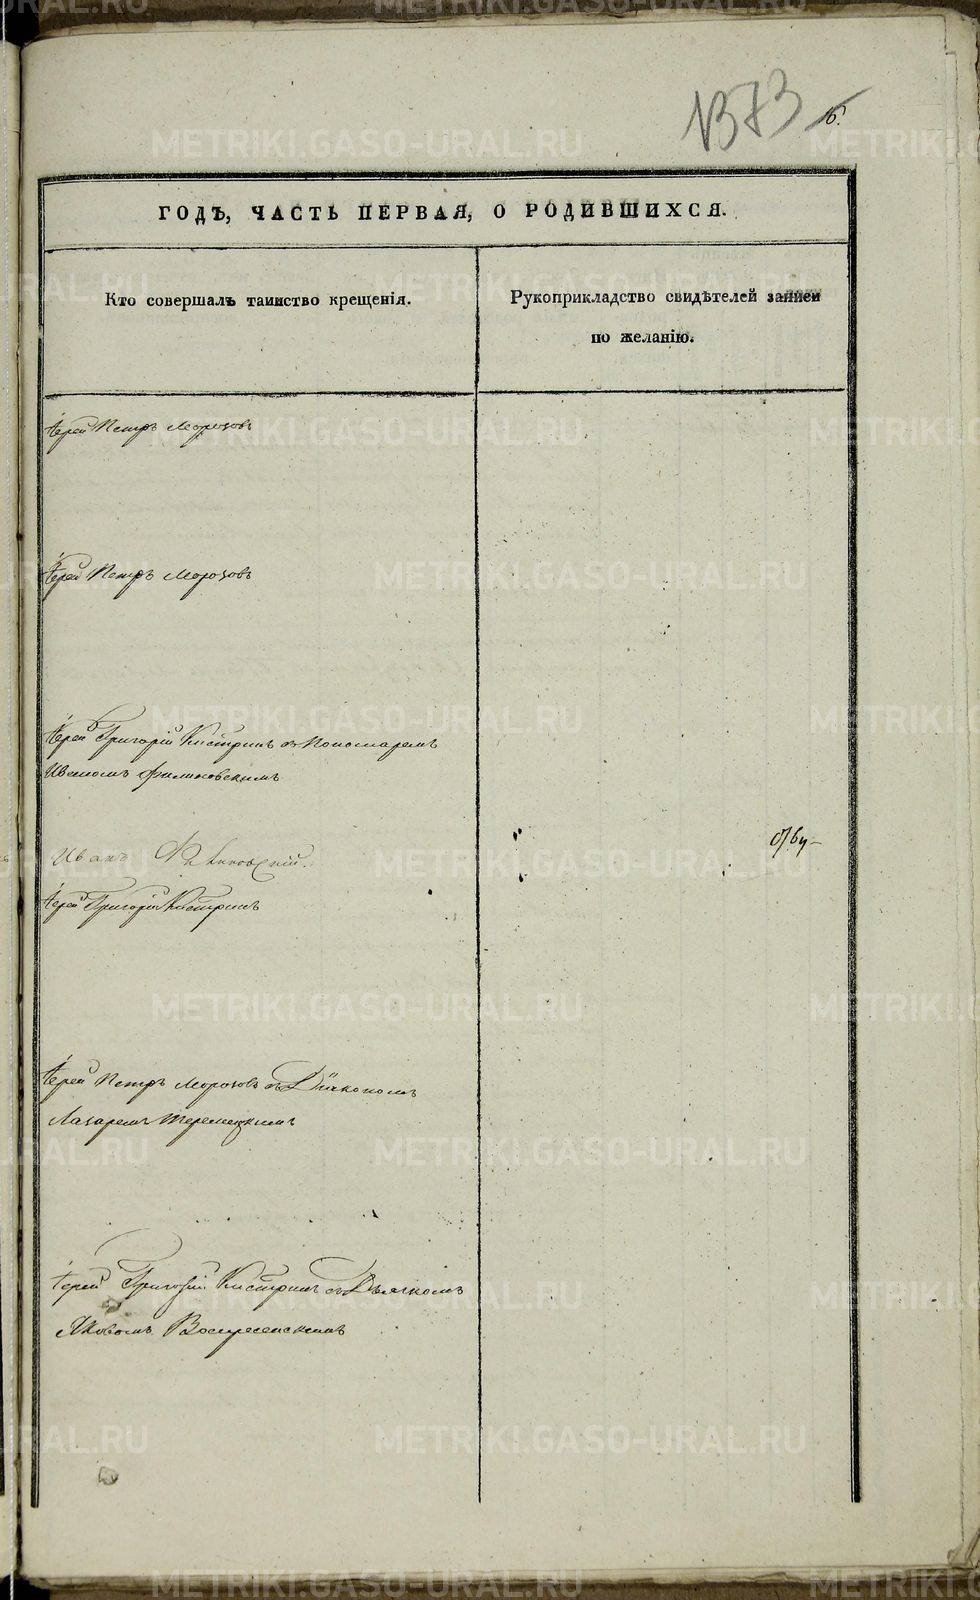 1373 16.
ГОДЪ, ЧАСТЬ ПЕРВАЯ, О РОДИВШИХСЯ.
Кто совершалъ таинство крещенія.
Рукоприкладство свидѣтелей записи
по желанію.
Іерей Петръ Морозовъ
Іерей Петръ Морозовъ
Іерей Григорій Кистринъ съ Пономаремъ
Иваномъ
Иванъ
Іерей Григорій Кистринъ
Іерей Петръ Морозовъ съ Діакономъ
Лазаремъ
Іерей Григорій Кистринъ съ Дьячкомъ
Яковомъ Воскресенскимъ
METRIKI.GASO-URAL.RU